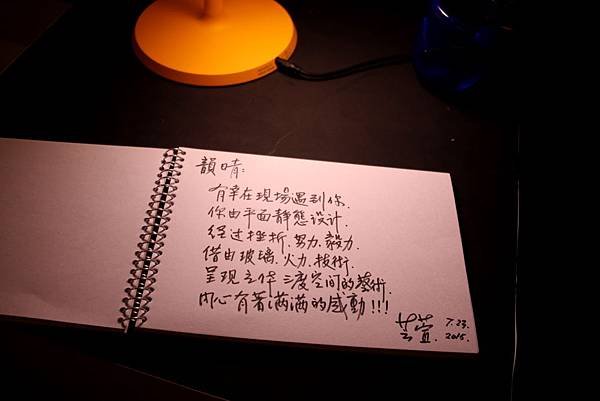 韻晴:
有幸在現場遇到你.
你由平面静態设计.
經过挫折.努力.毅力.
借由玻璃.火力.技術.
呈现立体三度空间的藝術.
内心有著满满的感動!!!
芸萱 7.23.
2015.